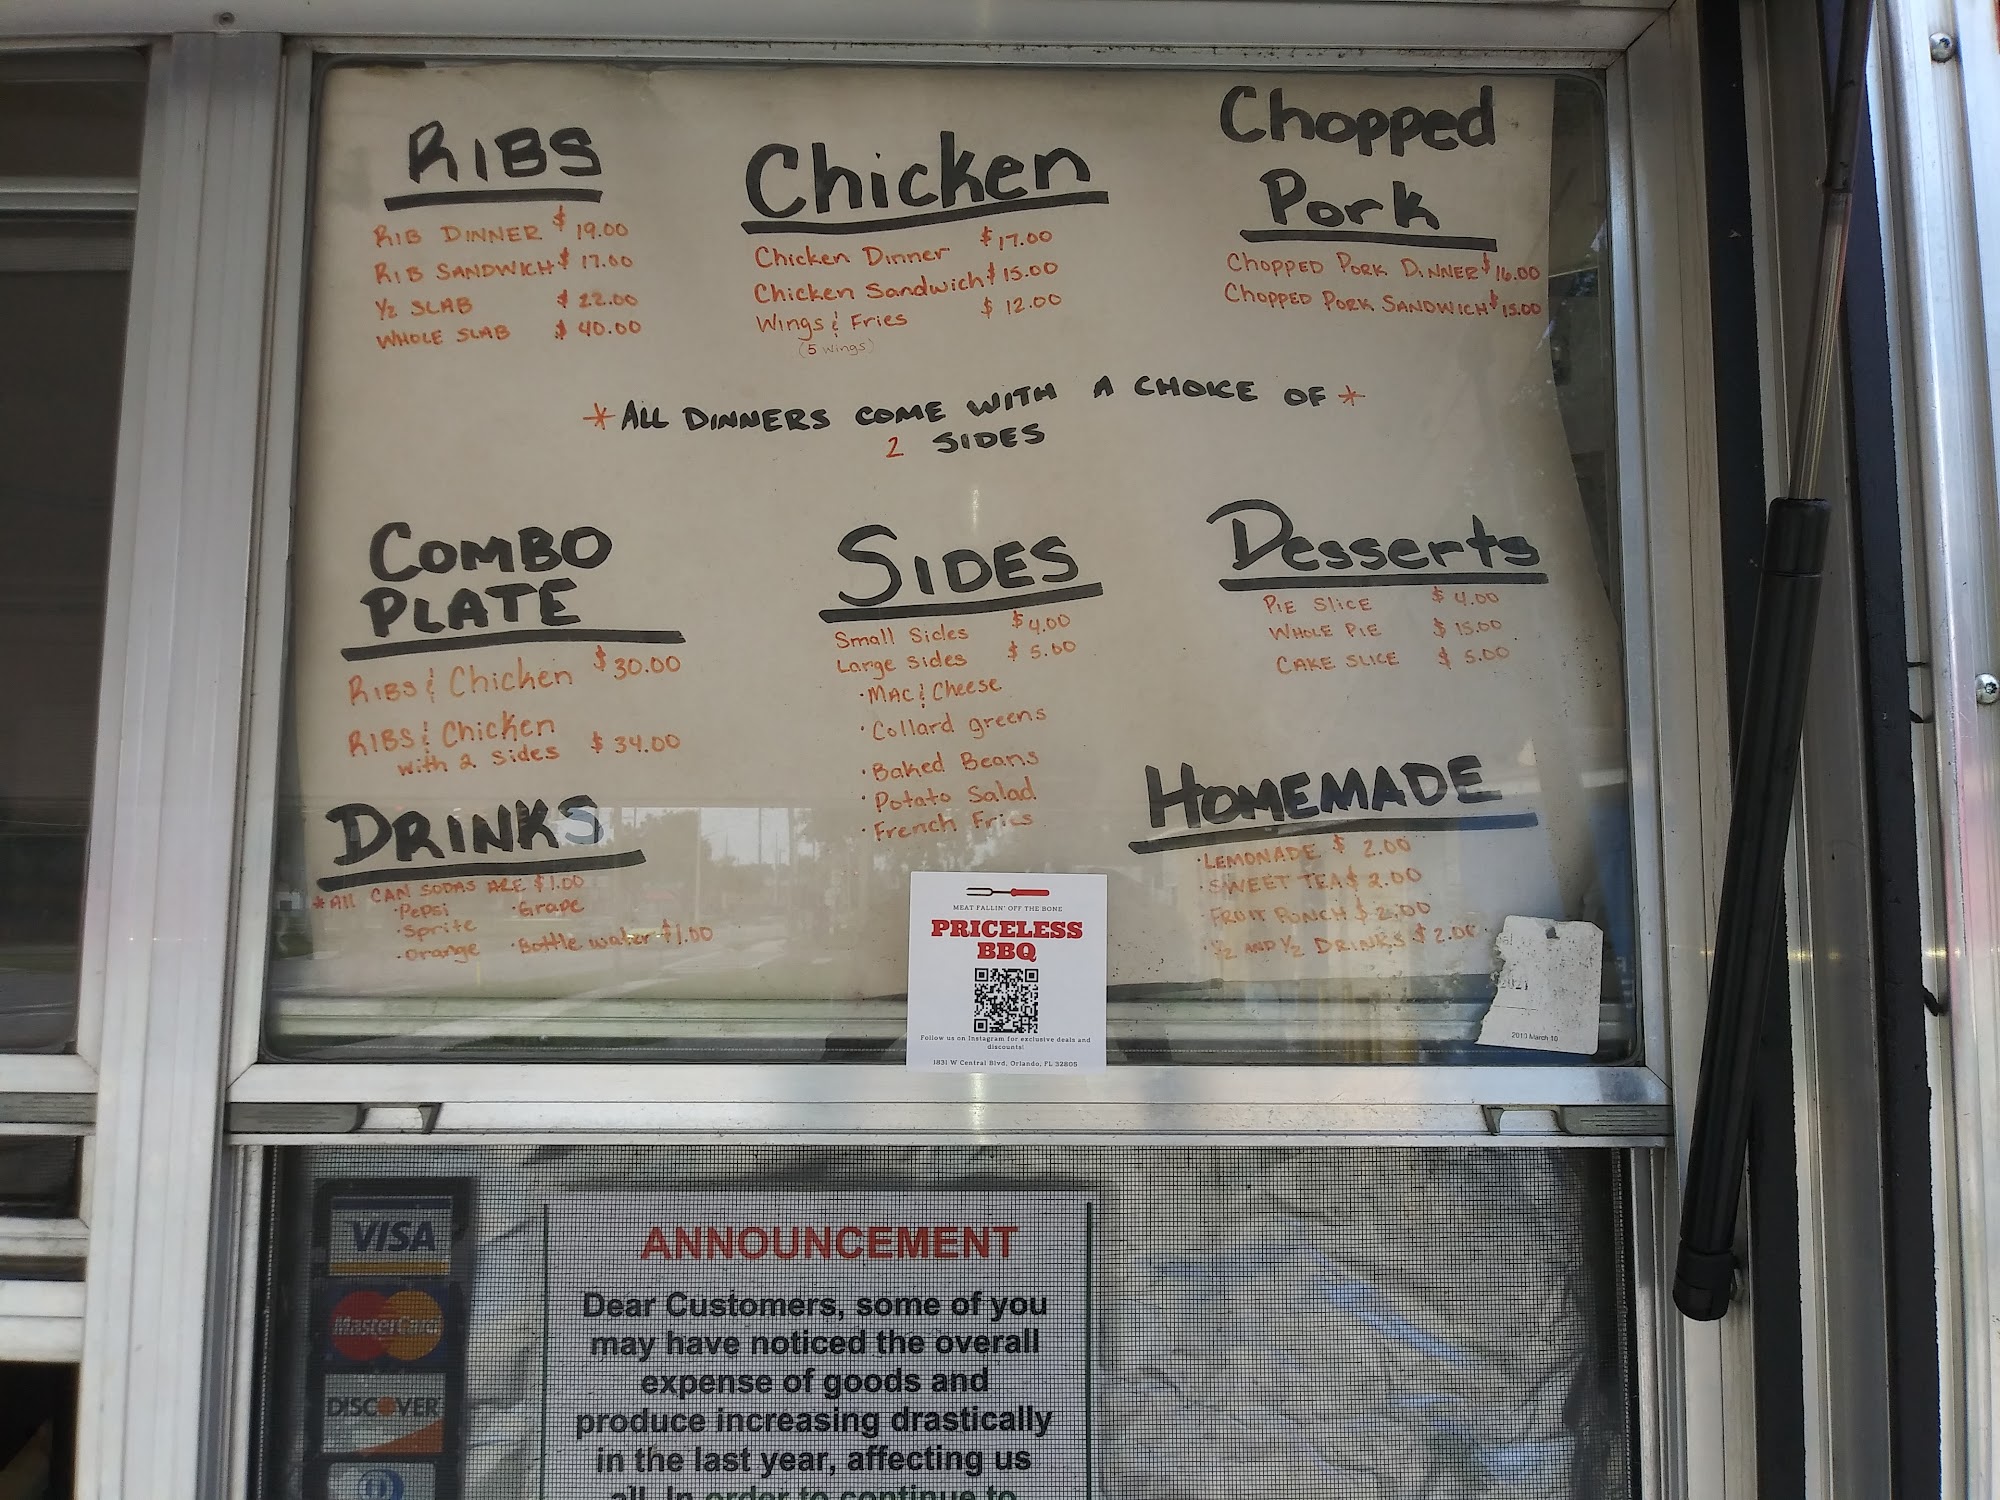 RIBS
RIB DINNER $ 19.00
RIB SANDWICH $ 17.00
1/2 SLAB $ 22.00
WHOLE SLAB $ 40.00
Chicken
Chicken Dinner $ 17.00
Chicken Sandwich $ 15.00
Wings & Fries $ 12.00
(5 wings)
Chopped
Pork
CHOPPED PORK DINNER $ 16.00
CHOPPED PORK SANDWICH $ 15.00
*ALL DINNERS COME WITH A CHOICE OF*
2 SIDES
COMBO
PLATE
RIBS & Chicken $ 30.00
RIBS & Chicken
with 2 sides $ 34.00
SIDES
Small Sides $ 4.00
Large sides $ 5.00
·MAC & Cheese
·Collard greens
·Baked Beans
·Potato Salad
·French Fries
Desserts
PIE SLICE $ 4.00
WHOLE PIE $ 15.00
CAKE SLICE $ 5.00
DRINKS
*All CAN SODAS ARE $1.00
·Pepsi ·Grape
·Sprite
·Orange ·Bottle water $1.00
HOMEMADE
·LEMONADE $ 2.00
·SWEET TEA $ 2.00
·FRUIT PUNCH $ 2.00
·1/2 AND 1/2 DRINKS $ 2.00
MEAT FALLIN' OFF THE BONE
PRICELESS
BBQ
Follow us on Instagram for exclusive deals and
discounts!
1831 W Central Blvd, Orlando, FL 32805
2021
March 10
VISA
MasterCard
DISCOVER
ANNOUNCEMENT
Dear Customers, some of you
may have noticed the overall
expense of goods and
produce increasing drastically
in the last year, affecting us
all. In order to continue to